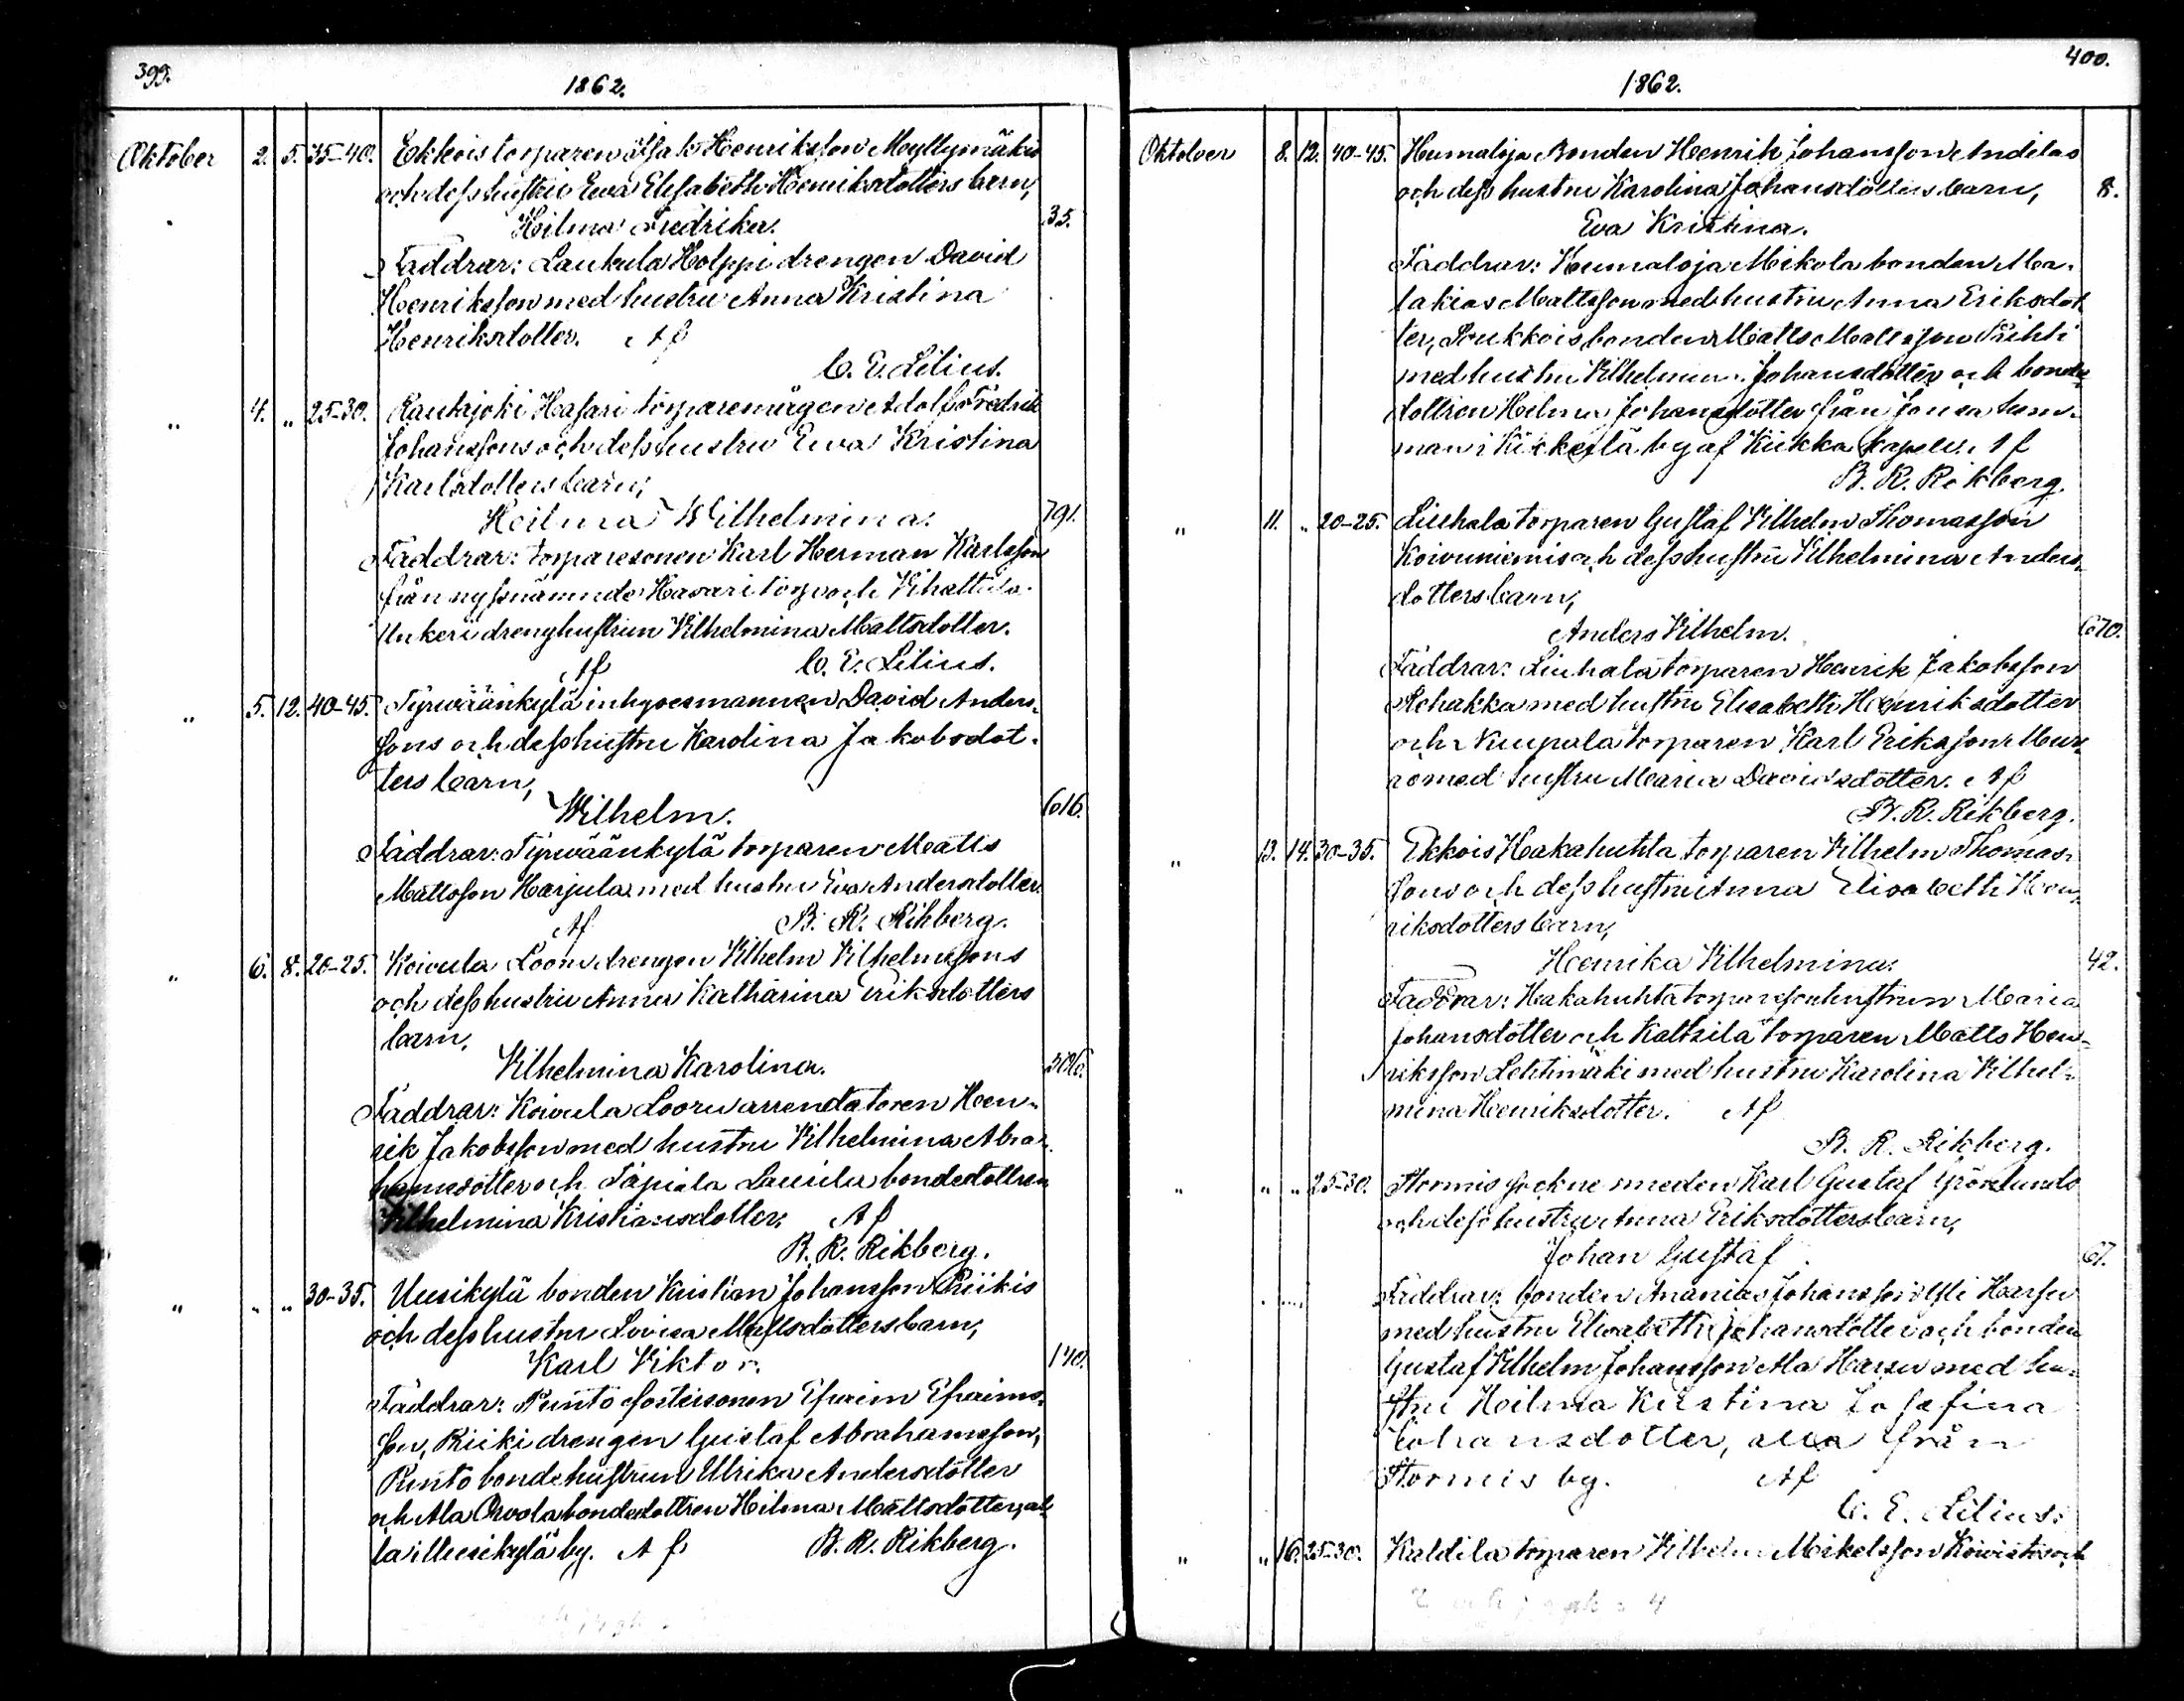 399.
1862.
Oktober 2. 5. 35-40. Ekkois torparen Isak Henriksson Myllymäkis
och dess hustru Eva Elisabeth Henriksdotters barn,
Heilma Fredrika. 35.
Faddrar: Laukula Holppi drengen David
Henriksson med hustru Anna Kristina
Henriksdotter. Af
C. E. Lilius.
„ 4. „ 25-30. Rautajoki Hasari torparemågen Adolf Fredrik
Johanssons och dess hustru Eva Kristina
Karlsdotters barn,
Heilma Wilhelmina. 791.
Faddrar: torparesonen Karl Herman Karlsson
från nyssnämnde Hasari torp och Vihattula
Unkeri drenghustrun Vilhelmina Mattsdotter.
Af C. E. Lilius.
„ 5. 12. 40-45. Tyrväänkylä inhysesmannen David Anders-
sons och dess hustru Karolina Jakobsdot-
ters barn,
Wilhelm. 616.
Faddrar: Tyrväänkylä torparen Matts
Mattsson Harjula med hustru Eva Andersdotter.
Af B. R. Rikberg.
„ 6. 8. 20-25. Koivula Looru drengen Vilhelm Vilhelmssons
och dess hustru Anna Katharina Eriksdotters
barn,
Vilhelmina Karolina.
Faddrar: Koivula Looru arrendatoren Hen-
rik Jakobsson med hustru Vilhelmina Abra-
hamsdotter och Tapiala Laurila bondedottren
Vilhelmina Kristiansdotter. Af
B. R. Rikberg.
„ „ „ 30-35. Uusikylä bonden Kristian Johansson Riikis
och dess hustru Lovisa Mattsdotters barn,
Karl Viktor. 140.
Faddrar: Punto fostersonen Efraim Efraims-
son, Riiki drengen Gustaf Abrahamsson,
Punto bondehustrun Ulrika Andersdotter
och Ala Orvola bondedottren Heilma Mattsdotter, al-
la i Uusikylä by. Af B. R. Rikberg.
400.
1862.
Oktober 8. 12. 40-45. Humaloja Bonden Henrik Johansson Andilas
och dess hustru Karolina Johansdotters barn, 8.
Eva Kristina.
Faddrar: Humaloja Mikola bonden Ma-
lakias Mattsson med hustru Anna Eriksdot-
ter, Soukkois bonden Matts Mattsson Prihti
med hustru Vilhelmina Johansdotter och bonde-
dottren Heilma Johansdotter från Jonsa hem-
man i Kiikeilä by af Kiikka kapell. Af
B. R. Rikberg.
„ 11. „ 20-25. Liuhala torparen Gustaf Vilhelm Thomasson
Koivuniemis och dess hustru Vilhelmina Anders-
dotters barn,
Anders Vilhelm. 670.
Faddrar: Liuhala torparen Henrik Jakobsson
Rehakka med hustru Elisabeth Henriksdotter
och Nuupala torparen Karl Eriksson Mur-
ro med hustru Maria Davidsdotter. Af
B. R. Rikberg.
„ 13. 14. 30-35. Ekkois Hakahuhta torparen Vilhelm Thomas-
sons och dess hustru Anna Elisabeth Hen-
riksdotters barn,
Henrika Vilhelmina. 42.
Faddrar: Hakahuhta torparesonhustrun Maria
Johansdotter och Kaltsila torparen Matts Hen-
riksson Lehtimäki med hustru Karolina Vilhel-
mina Henriksdotter. Af
B. R. Rikberg.
„ „ „ 25-30. Stormis sockne smeden Karl Gustaf Grönlunds
och dess hustru Anna Eriksdotters barn,
Johan Gustaf. 67.
Faddrar: bonden Ananias Johansson Yli Harsu
med hustru Elisabeth Johansdotter och bonden
Gustaf Vilhelm Johansson Ala Harsu med hu-
stru Heilma Kristina Josefina
Johansdotter, alla från
Stormis by. Af
C. E. Lilius.
„ „ 16. 25-30. Kaldila torparen Vilhelm Mikelsson Koivistos och